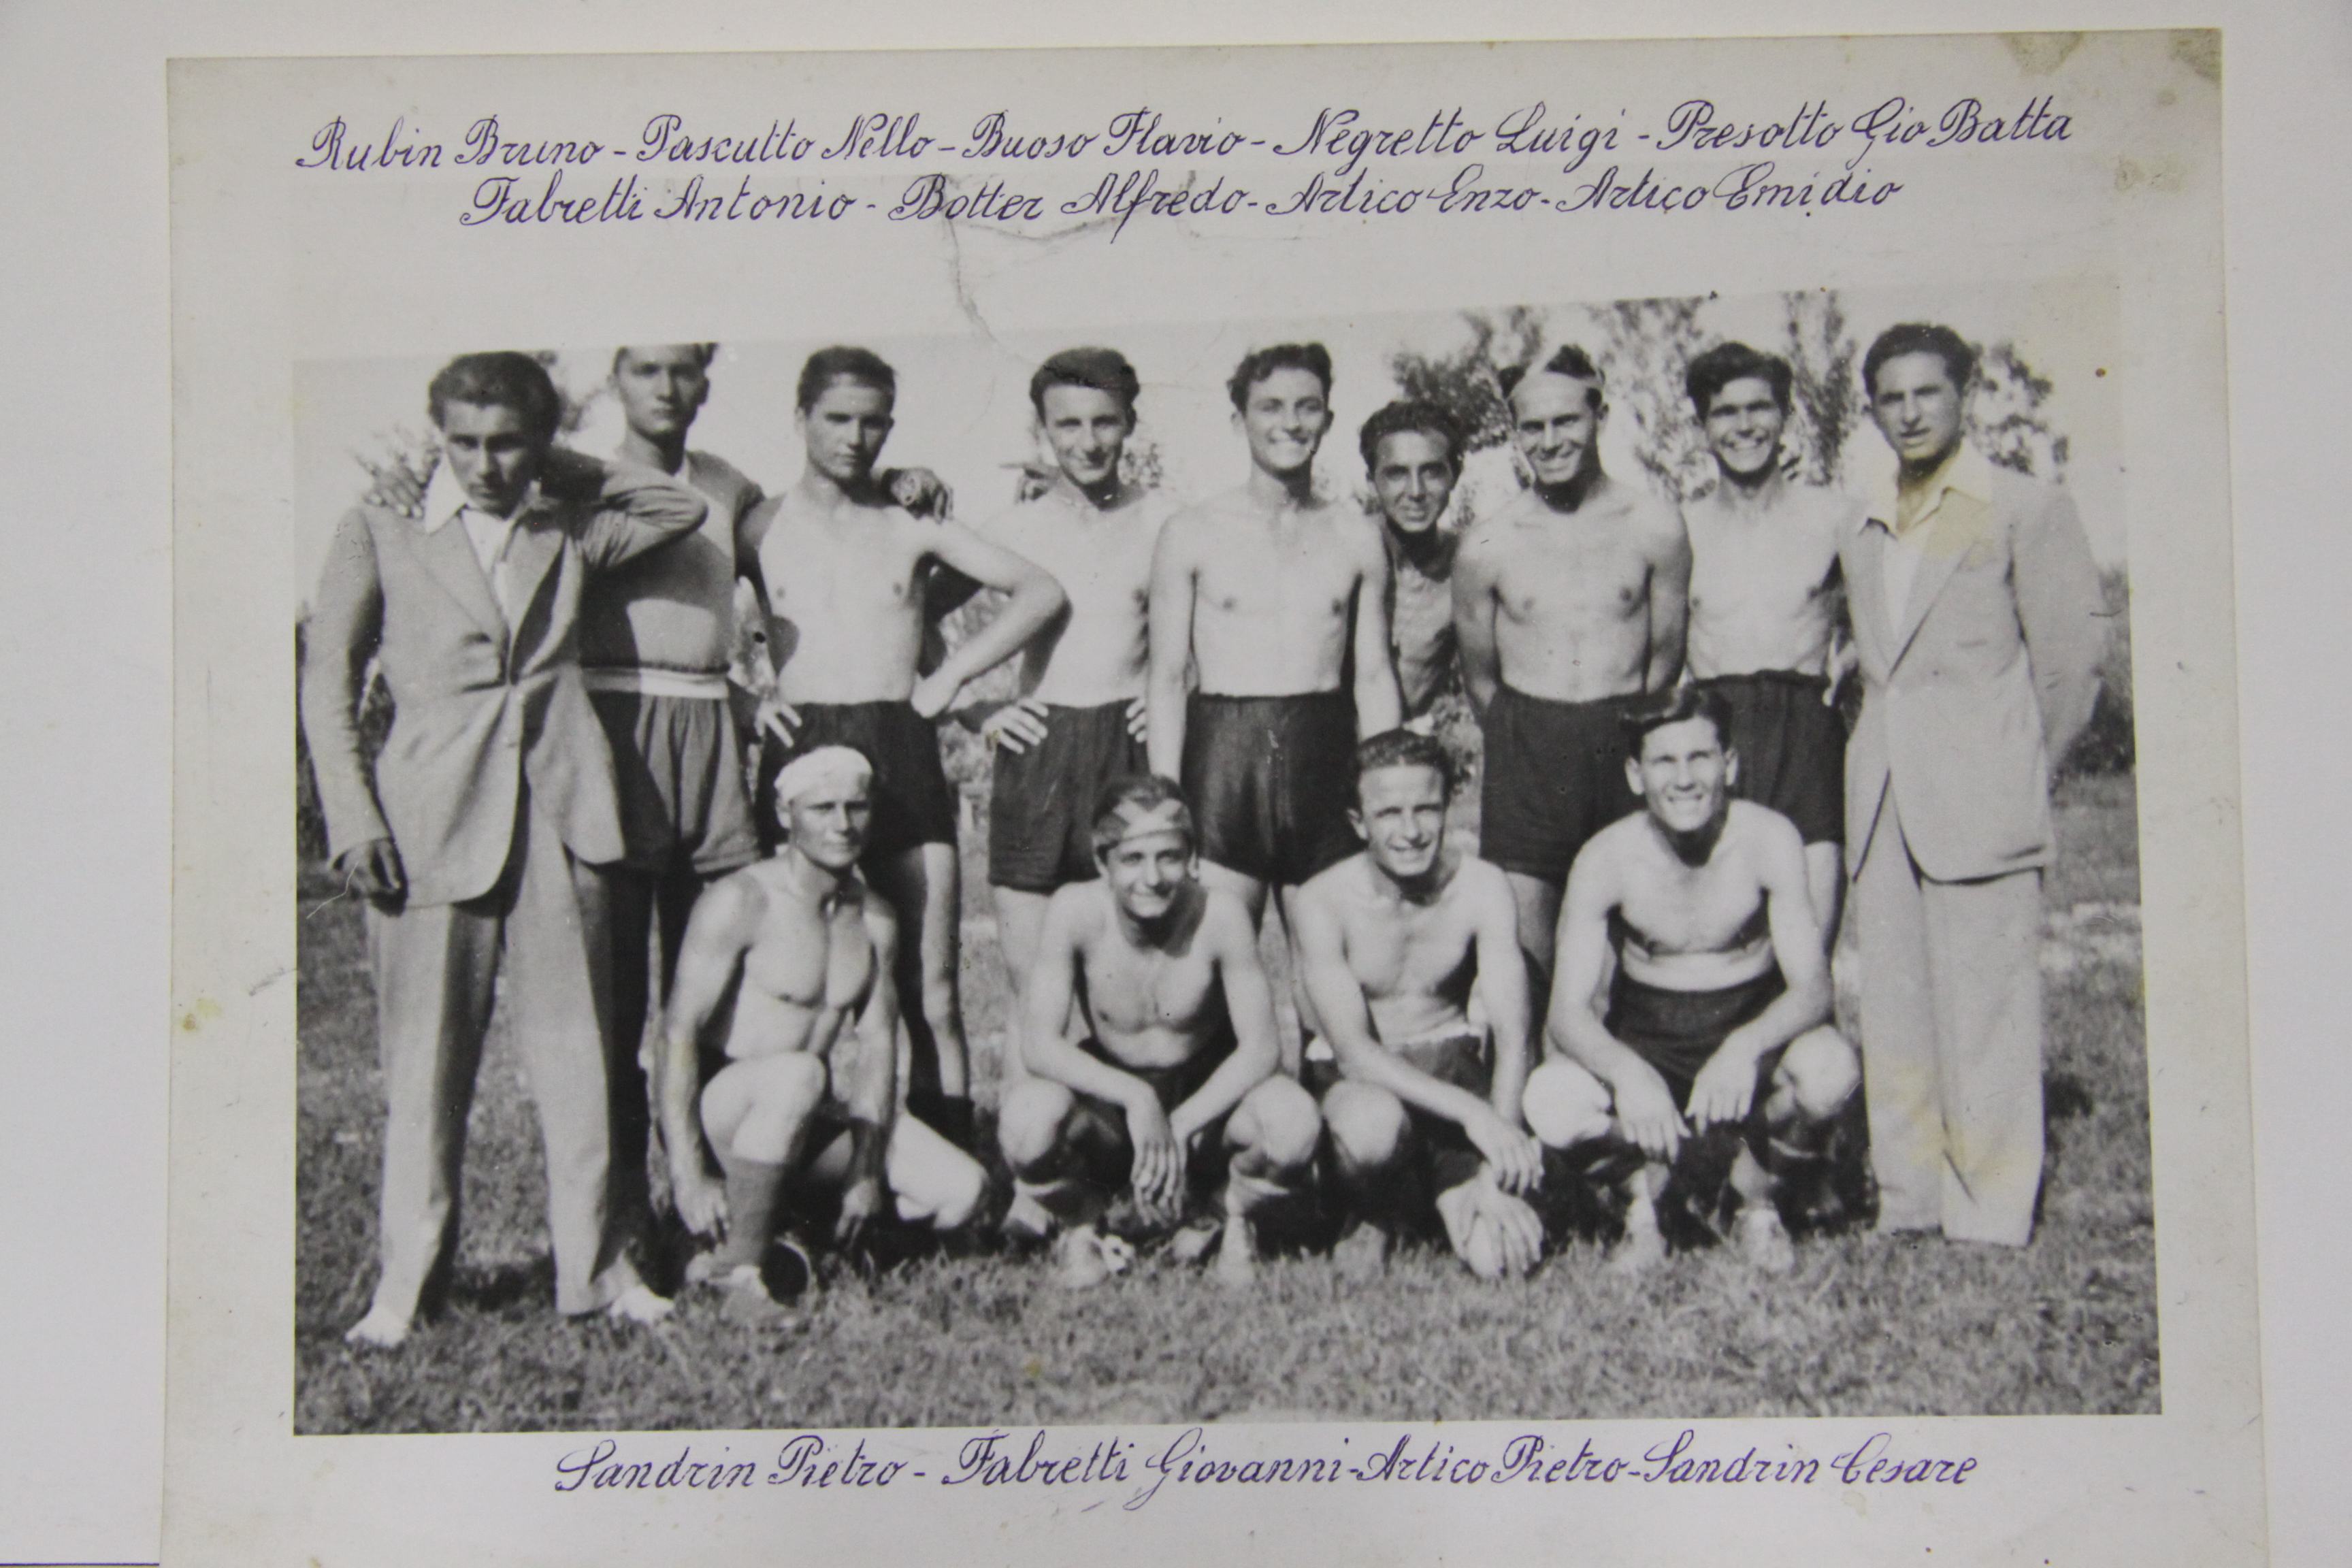 Rubin Bruno - Pascutto Nello - Buoso Flavio - Negretto Luigi - Presotto Gio Batta
Fabretti Antonio - Botter Alfredo - Artico Enzo - Artico Emidio
Sandrin Pietro - Fabretti Giovanni - Artico Pietro - Sandrin Cesare